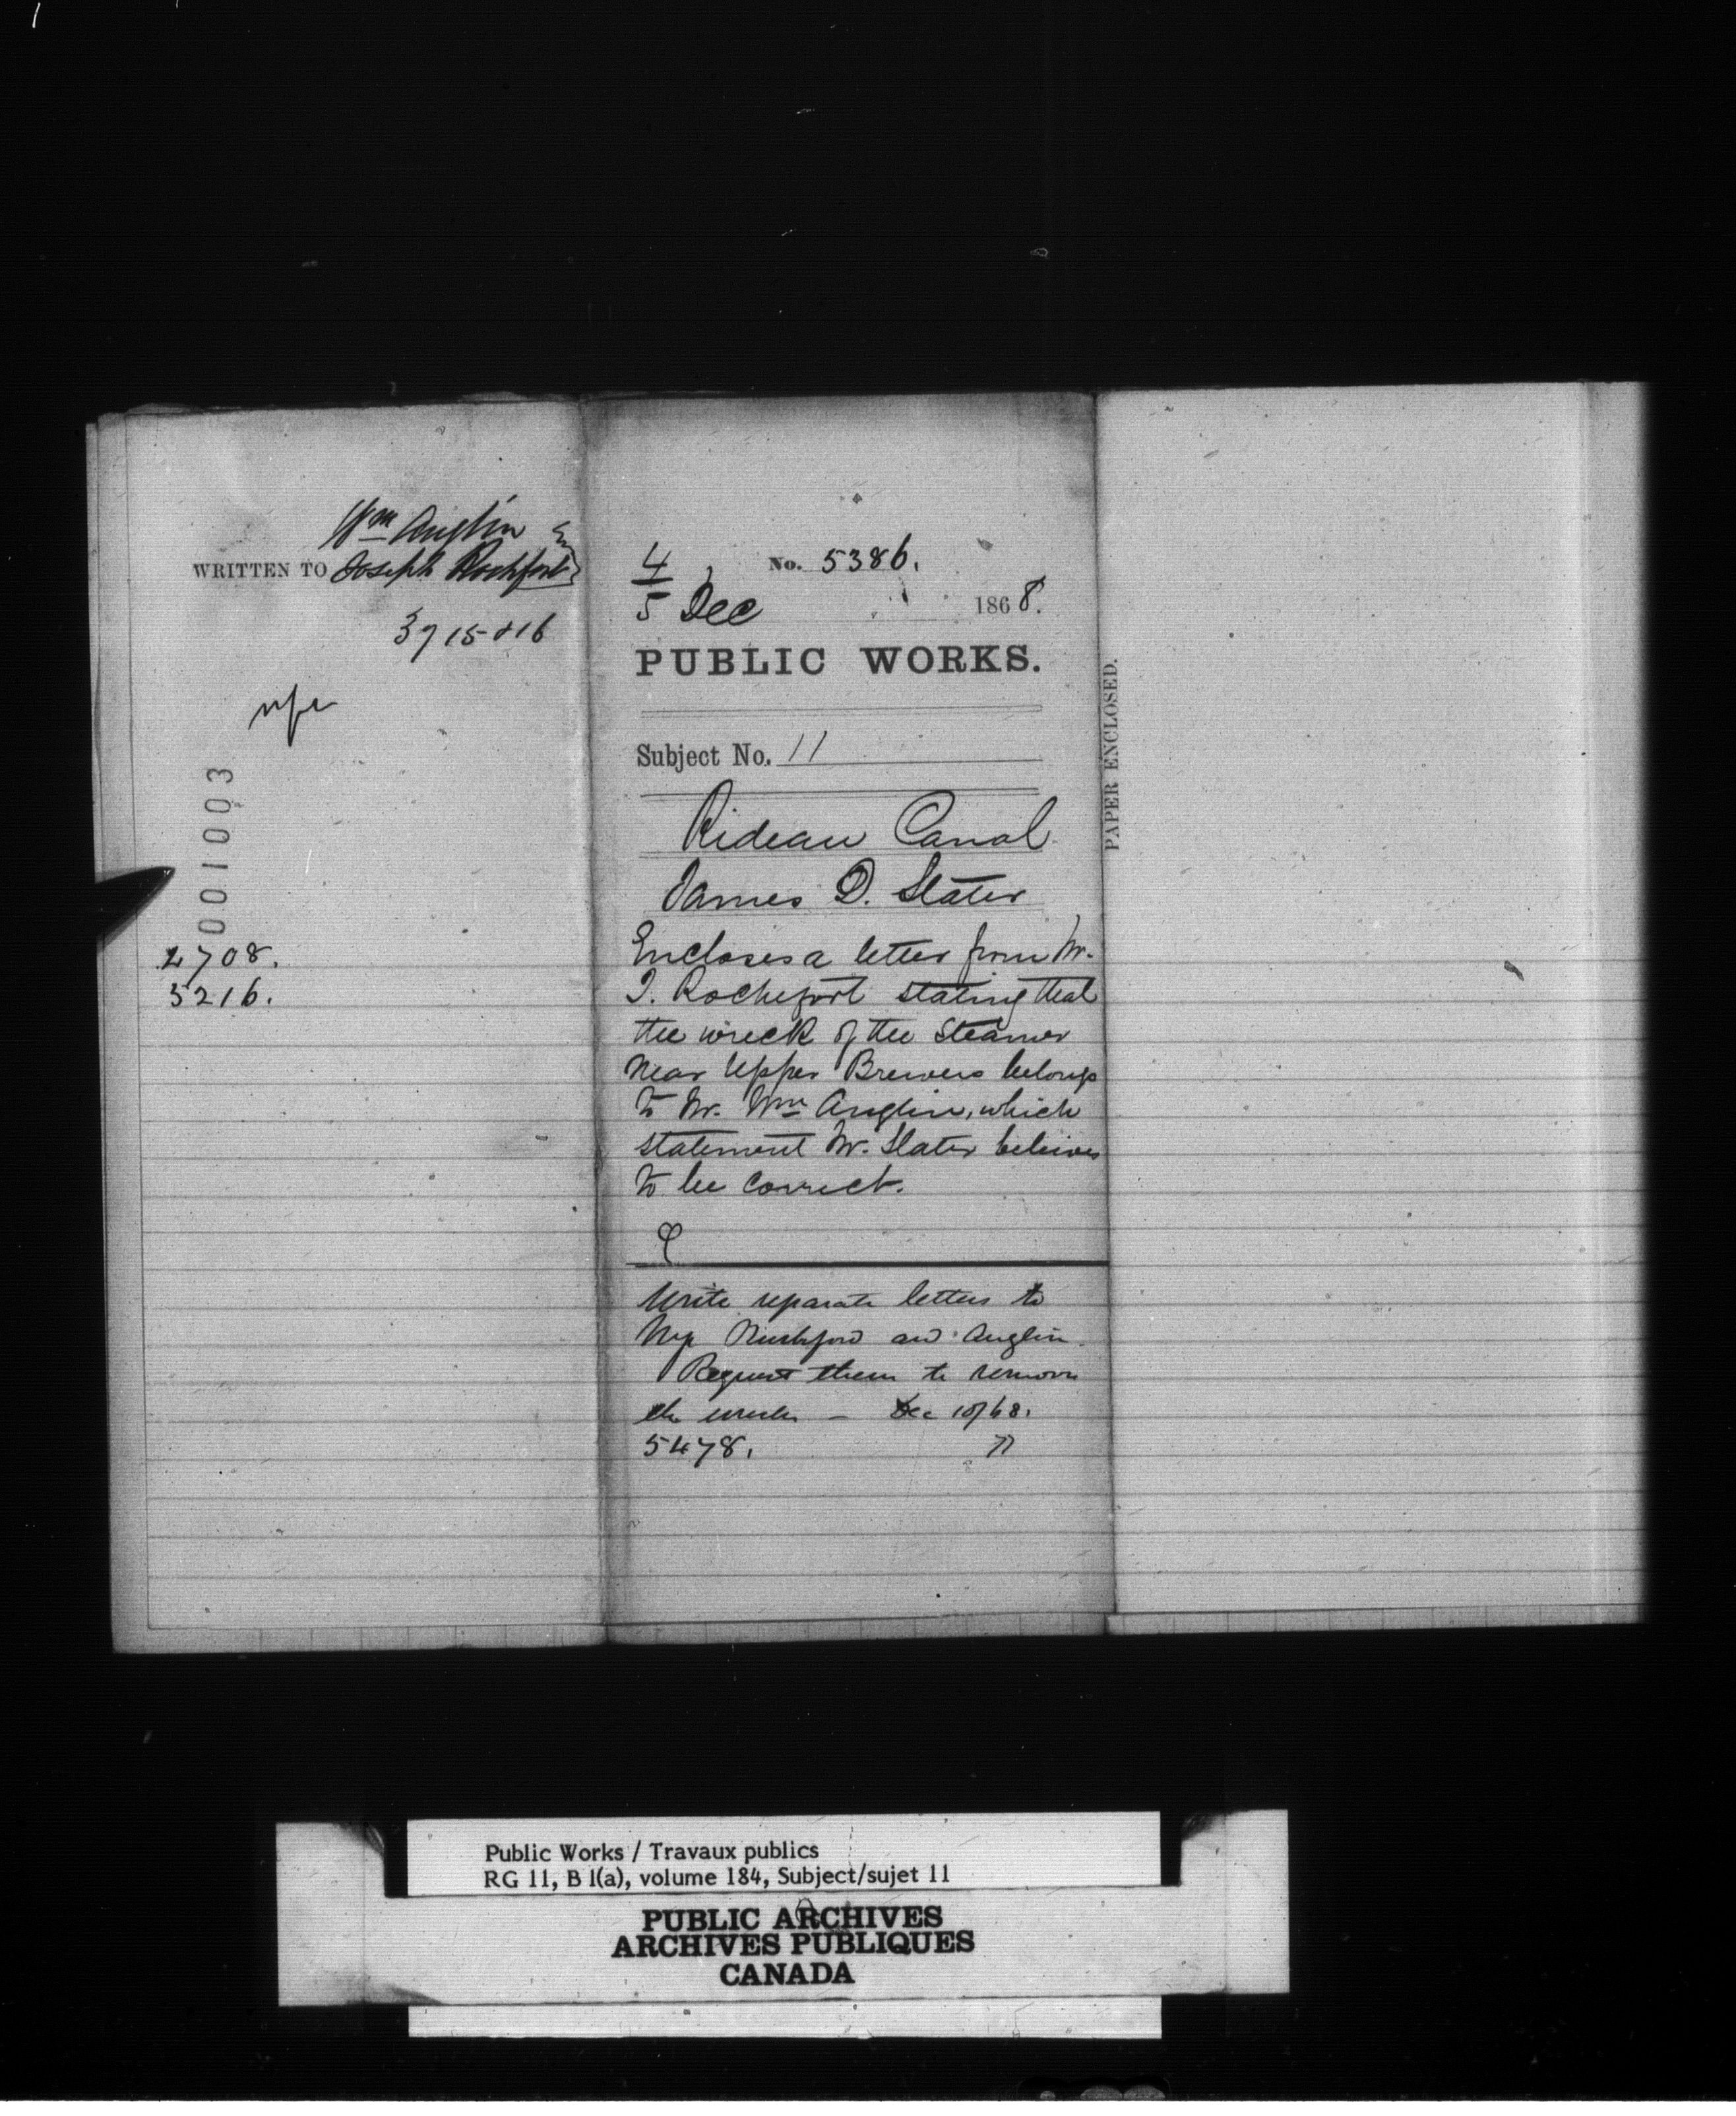 Wm Anglin
WRITTEN TO Joseph Rochfort
3715 & 16
001003
2708.
5216.
4
5 Dec 1868.
No. 5386.
PUBLIC WORKS.
Subject No. 11
Rideau Canal
James D. Slater
Encloses a letter from Mr.
J. Rochefort stating that
the wreck of the Steamer
near Upper Brewers belongs
to Mr. Wm Anglin, which
statement Mr. Slater believes
to be correct.
Write separate letters to
and Anglin
Request them to remove
the wreck - Dec 10/68.
5478.
PAPER ENCLOSED.
Public Works / Travaux publics
RG 11, B 1(a), volume 184, Subject/sujet 11
PUBLIC ARCHIVES
ARCHIVES PUBLIQUES
CANADA